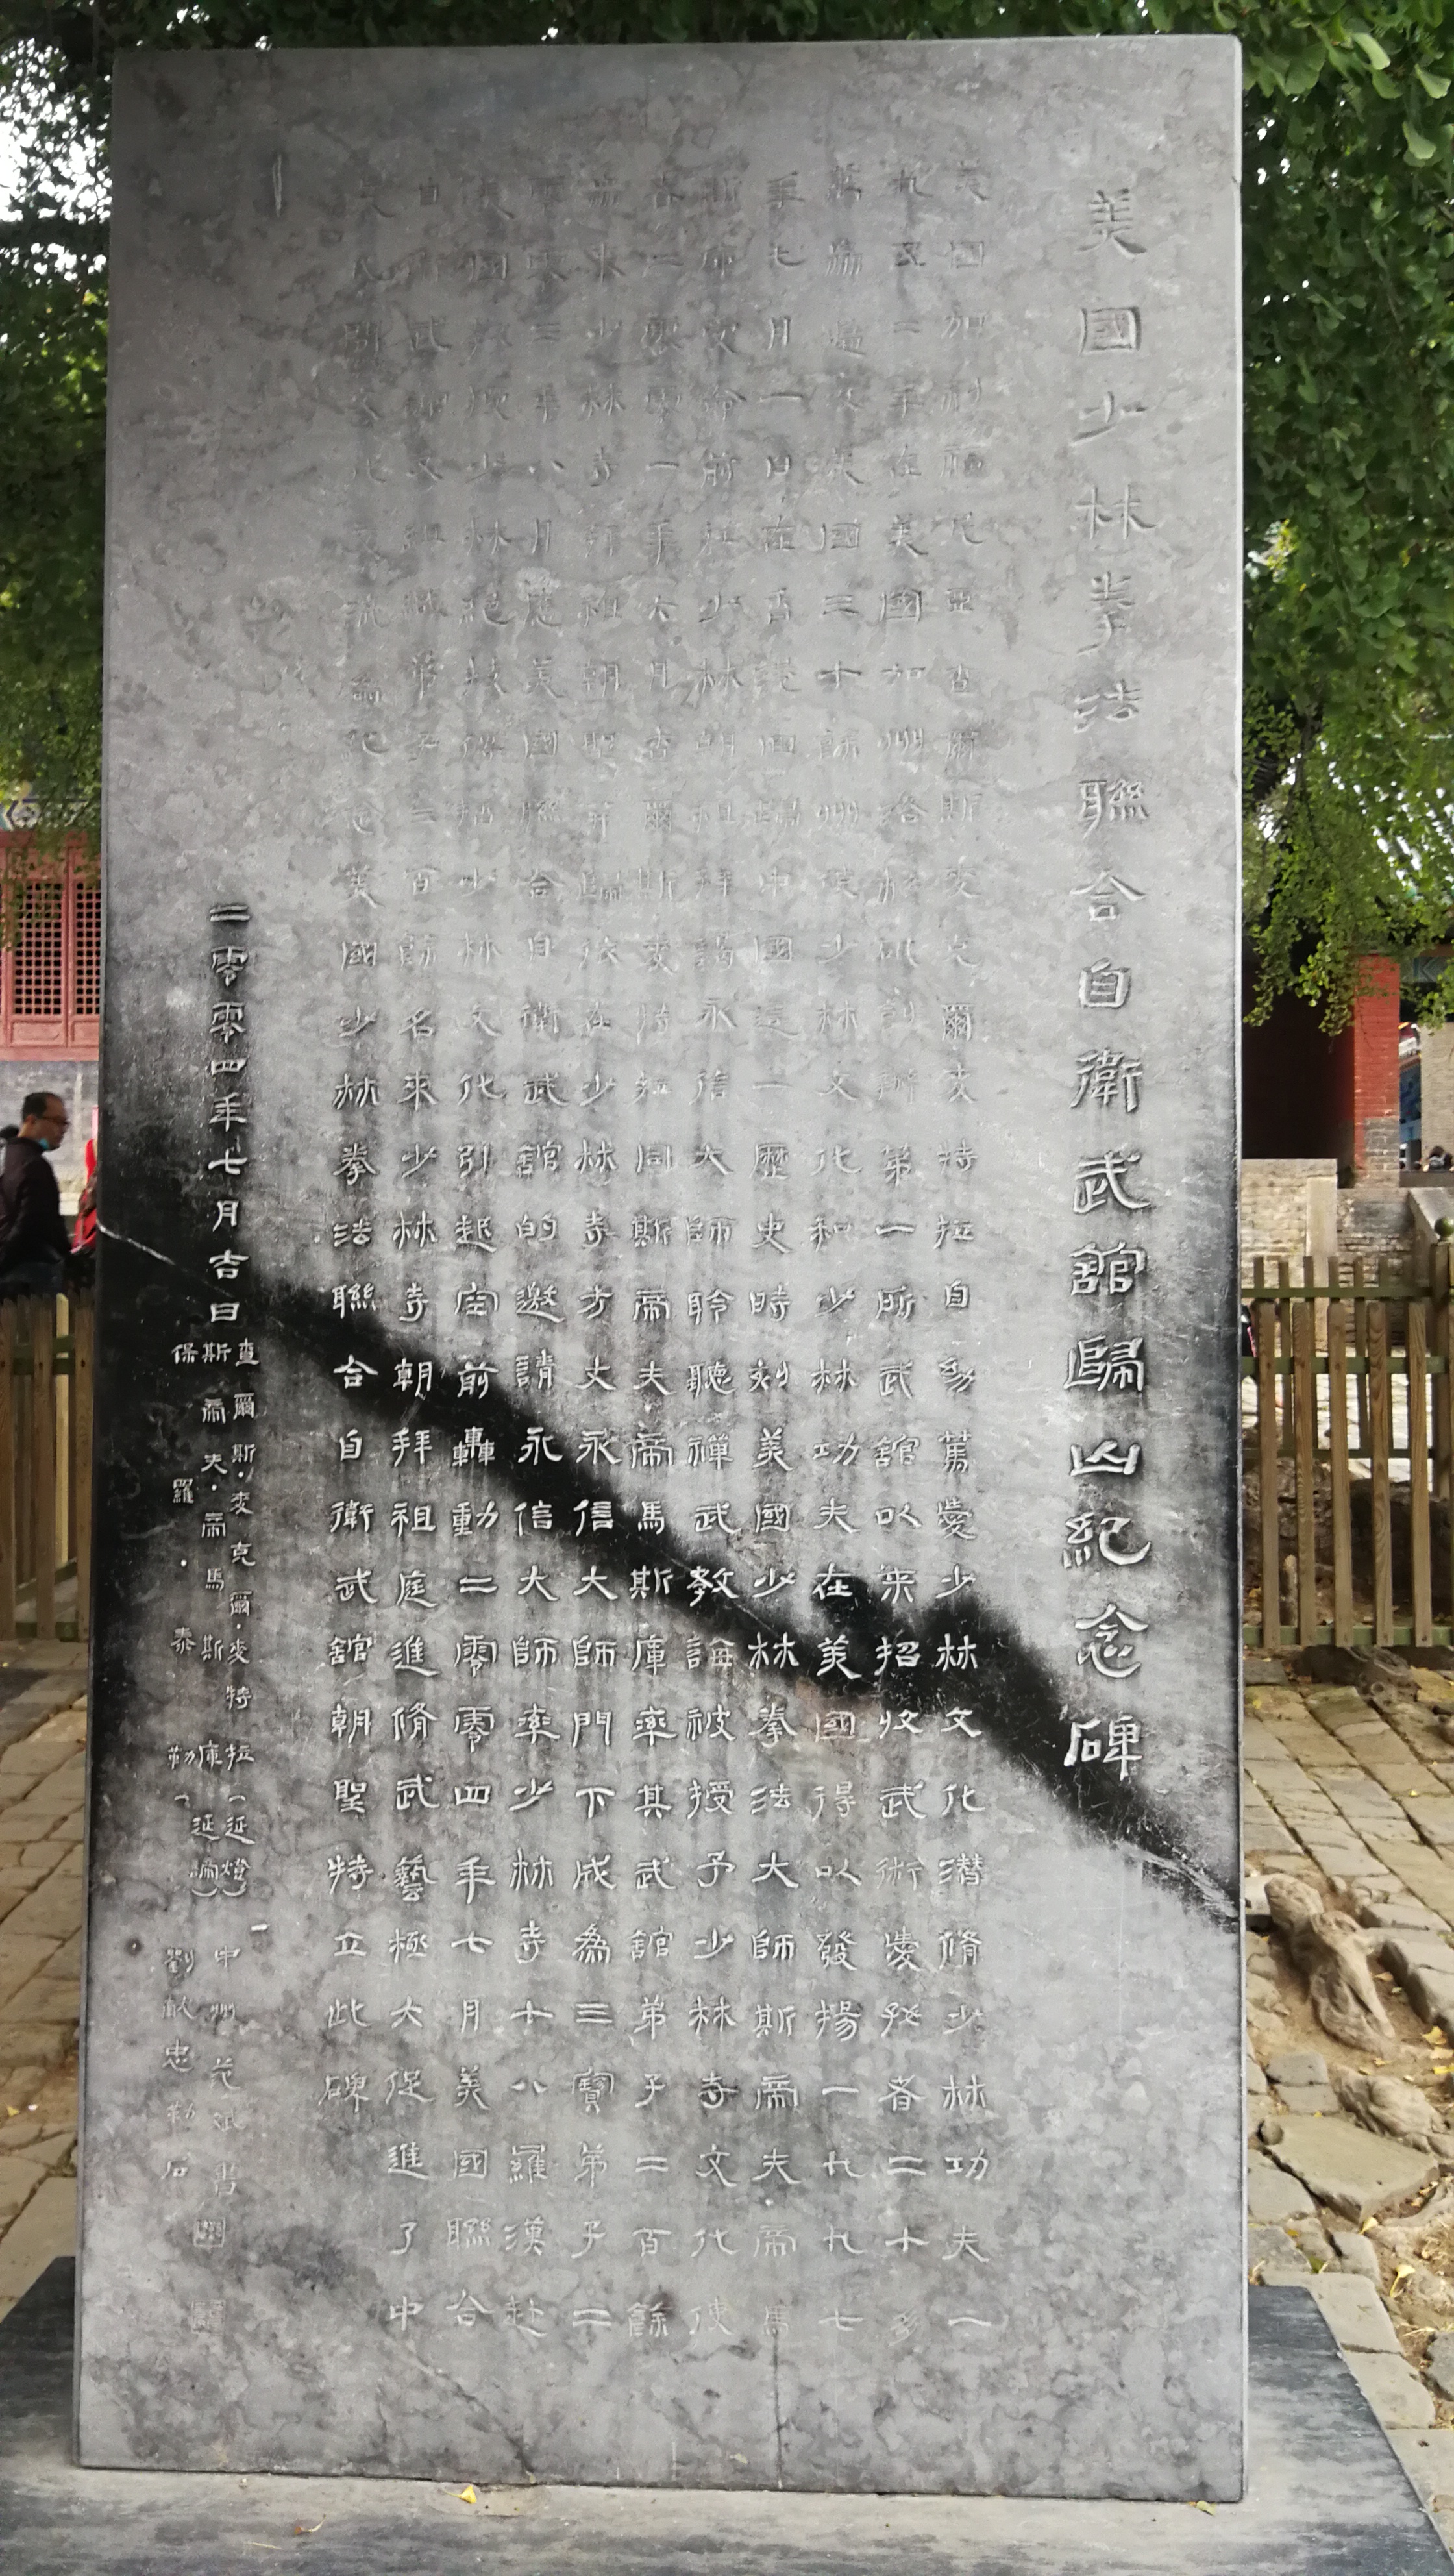 美國少林拳法聯合自衛武館歸山紀念碑
美國加利福尼亞查爾斯麥克爾麥特拉自幼篤愛少林文化潛脩少林功夫一
九五二年在美國加州洛杉磯創辦第一所武館以來招收武術愛好者二十多
萬編遍及美國三十餘州使少林文化和少林功夫在美國得以發揚一九九七
年七月一日在香港回歸中國這一歷史時刻美國少林拳法大師斯帝夫帝馬
斯庫受命前往少林朝祖拜謁永信大師聆聽禪武教誨被授予少林寺文化使
者二零零一年六月查爾斯麥特拉同斯帝夫帝馬斯庫率其武館弟子二百餘
衆來少林寺拜祖朝聖并皈依在少林寺方丈永信大師門下成為三寶弟子二
零零三年八月應美國聯合自衛武館的邀請永信大師率少林寺十八羅漢赴
美國弘揚少林絕技傳播少林文化引起空前轟動二零零四年七月美國聯合
自衛武館又組織弟子三百餘名來少林寺朝拜祖庭進脩武藝極大促進了中
美民間文化交流為紀念美國少林拳法聯合自衛武館朝聖特立此碑
二零零四年七月吉日
查爾斯·麥克爾·麥特拉（延燈）
斯帝夫·帝馬斯庫（延諭）
保羅·泰勒
中州范斌書
劉獻忠勒石